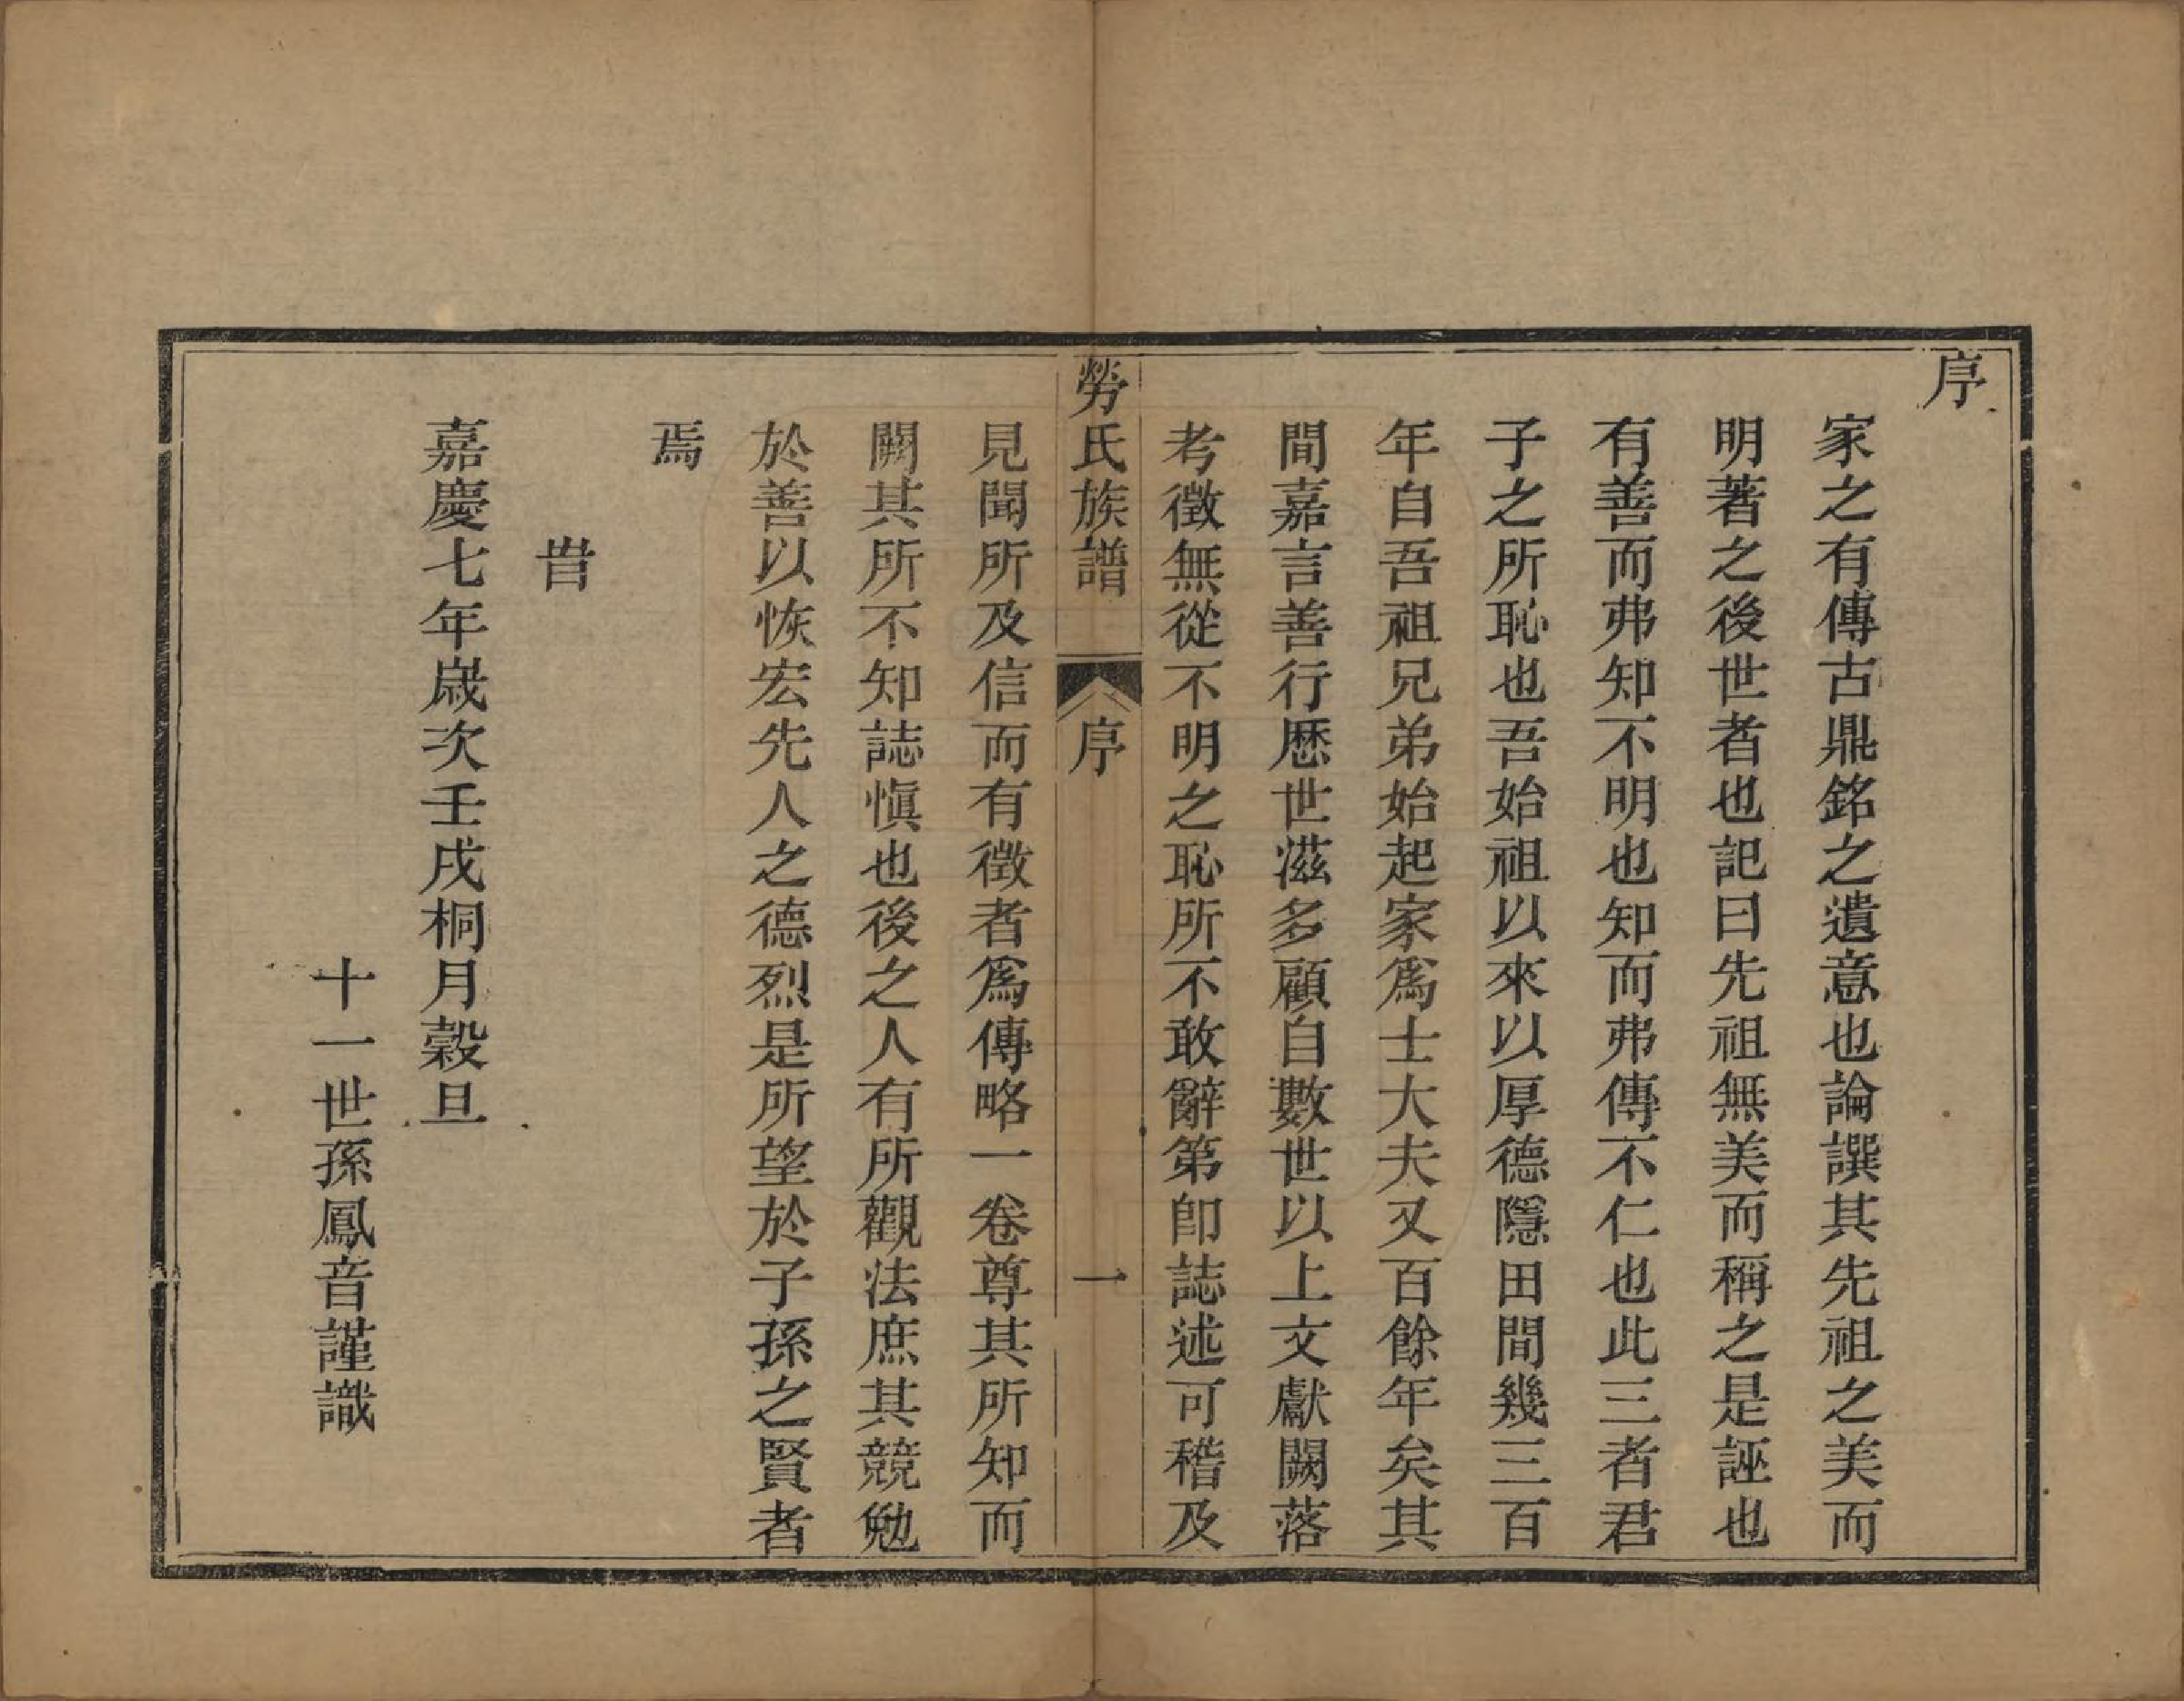 序
家之有傳古鼎銘之遺意也論譔其先祖之美而
明著之後世者也記曰先祖無美而稱之是誣也
有善而弗知不明也知而弗傳不仁也此三者君
子之所恥也吾始祖以來以厚德隱田間幾三百
年自吾祖兄弟始起家爲士大夫又百餘年矣其
間嘉言善行歷世滋多顧自數世以上文獻闕落
考徵無從不明之恥所不敢辭第卽誌述可稽及
勞氏族譜 序 一
見聞所及信而有徵者爲傳略一卷尊其所知而
闕其所不知誌愼也後之人有所觀法庶其競勉
於善以恢宏先人之德烈是所望於子孫之賢者
焉
旹
嘉慶七年歲次壬戌桐月穀旦
十一世孫鳳音謹識